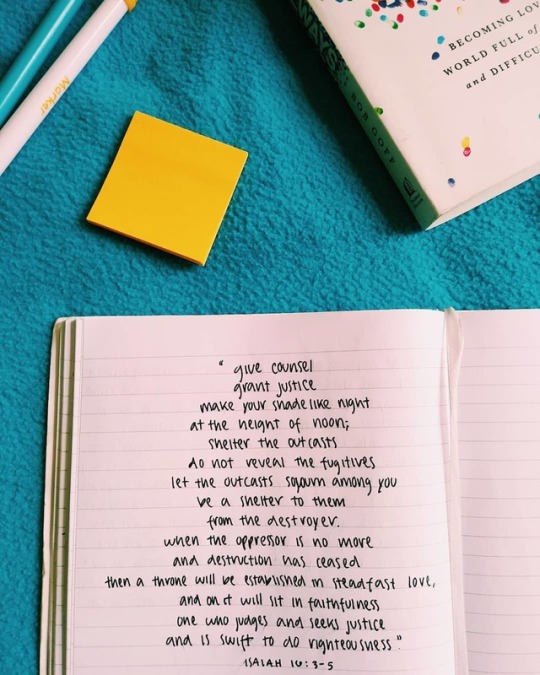 BECOMING LOV
WORLD FULL of
and DIFFICU
WAYS
BOB GOFF
Marker
" give counsel
grant justice
make your shade like night
at the height of noon;
shelter the outcasts
do not reveal the fugitives
let the outcasts sojourn among you
be a shelter to them
from the destroyer.
when the oppressor is no more
and destruction has ceased
then a throne will be established in steadfast love,
and on it will sit in faithfulness
one who judges and seeks justice
and is swift to do righteousness"
ISAIAH 16:3-5